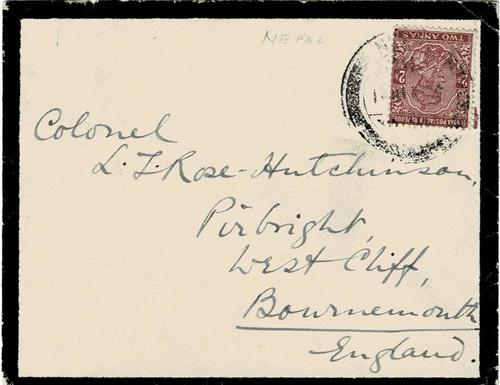 NEPAL
TWO ANNAS
2 2
INDIA POSTAGE & REVENUE
Colonel
L. F. Rose-Hutchinson,
Pirbright,
West Cliff,
Bournemouth
England.